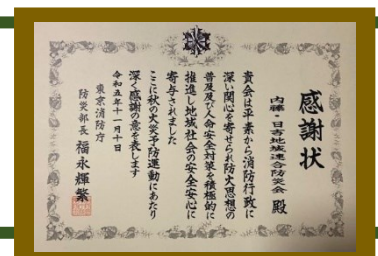 感謝状
内藤・日吉地域連合防災会 殿
貴会は平素から消防行政に
深い関心を寄せられ防火思想の
普及及び人命安全対策を積極的に
推進し地域社会の安全安心に
寄与されました
ここに秋の火災予防運動にあたり
深く感謝の意を表します
令和五年十一月十日
東京消防庁
防災部長 福永輝繁